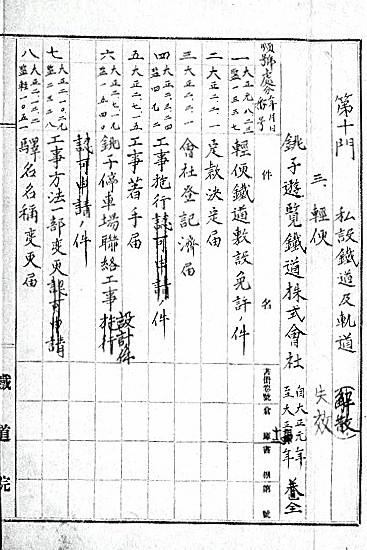 第十門 私設鐵道及軌道（解散）
三 輕便 失效
銚子遊覽鐵道株式會社 自大正元年 至大正 年 全
順號 處分年月日 番号 件名 書掛卷號 倉庫書 第 號
一 大正元、一二、三 監一三五三 輕便鐵道敷設免許ノ件
二 大正二、二、一 定款決定届
三 大正二、二、一 會社登記済届
四 大正 監 工事施行認可申請ノ件
五 大正二、七、一五 工事着手届
六 大正二、七、一九 監一五四〇 銚子停車場聯絡工事施行 設計ノ件
認可申請ノ件
七 大正二、一〇、二九 監 工事方法一部変更認可申請
八 大正二、一二、二 監輕一〇五一 驛名名稱変更届
鐵道院